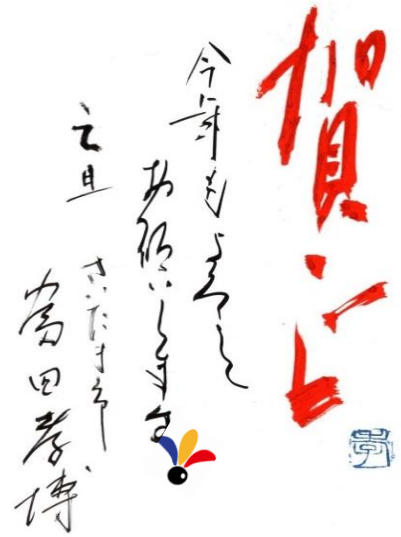 賀正
今年もよろしく
お願いします
元旦
さいたま市
富田孝博